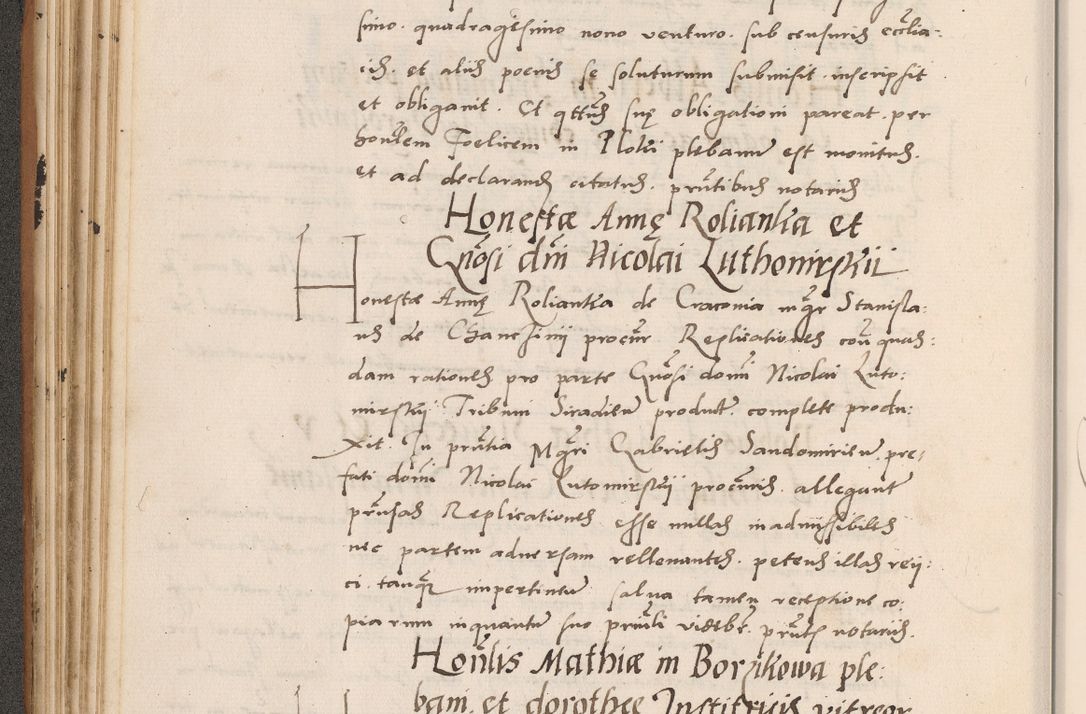 simo quadragesimo nono venturo sub censuris ecclia:
cis et aliis poenis se soluturum submisit inscripsit
et obligavit. Et quod suę obligationi pareat per
honlem Foelicem in Plotii plebanum est monitus
et ad declarand citatus. prntibus notariis
Honestæ Annę Roliantka et
Gnosi dni Nicolai Luthomirskii
Honestæ Annę Roliantka de Cracovia mgr Stanisla:
us de Chancinii procur Replicationes con quas:
dam rationes pro parte Gnosi domi Nicolai Luto:
mirskii Tribuni Siradien product complete produ:
xit. In prntia Mgri Gabrielis Sandomirien pre:
fati domi Nicolai Lutomirskii procuris allegant
prnsas Replicationes esse nullas inadmissibiles
nec partem adversam rellevantes petens illas reii:
ci tanq impertinen salva tamen receptione co:
piarum inquantum suo prnli videbr prntes notariis.
Honlis Mathiæ in Borzikowa ple:
bani et dorothee Institricis vitreor